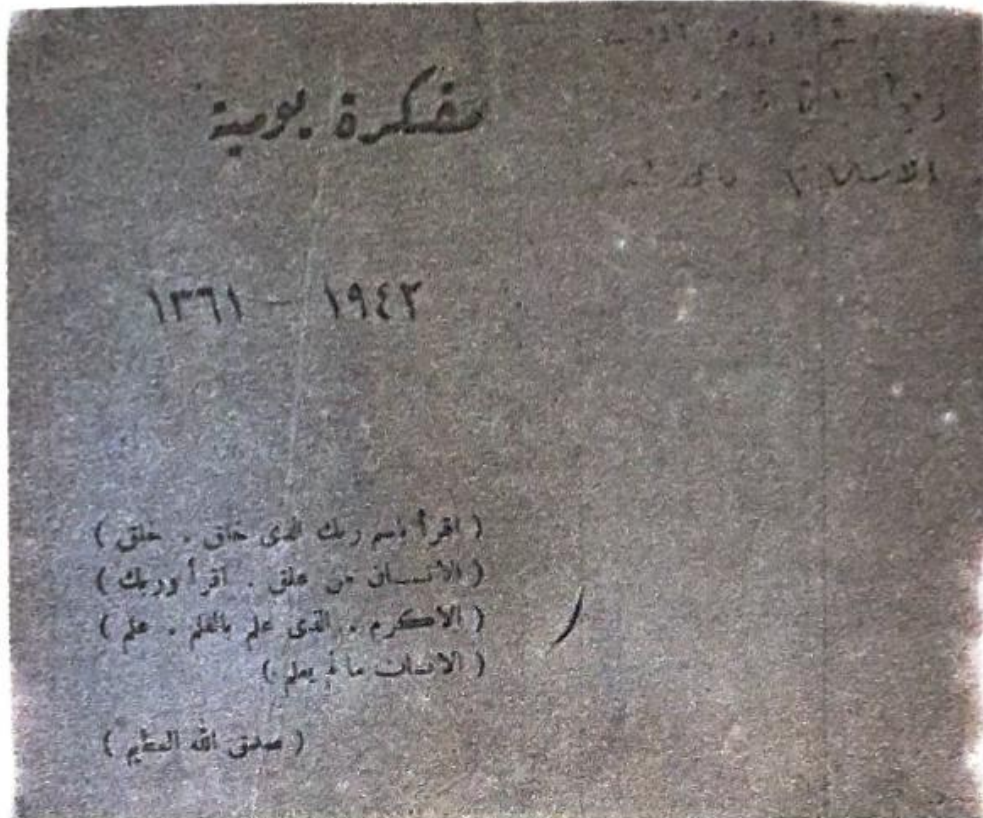 مفكرة يومية
١٩٤٢ – ١٣٦١
( اقرأ باسم ربك الذى خلق . خلق )
( الانسان من علق . اقرأ وربك )
( الاكرم . الذى علم بالقلم . علم )
( الانسان ما لم يعلم )
( صدق الله العظيم )